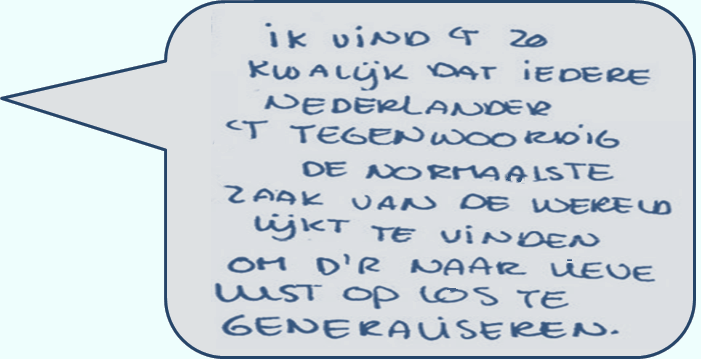 IK VIND 'T ZO
KWALIJK DAT IEDERE
NEDERLANDER
'T TEGENWOORDIG
DE NORMAALSTE
ZAAK VAN DE WERELD
LIJKT TE VINDEN
OM D'R NAAR LIEVE
LUST OP LOS TE
GENERALISEREN.